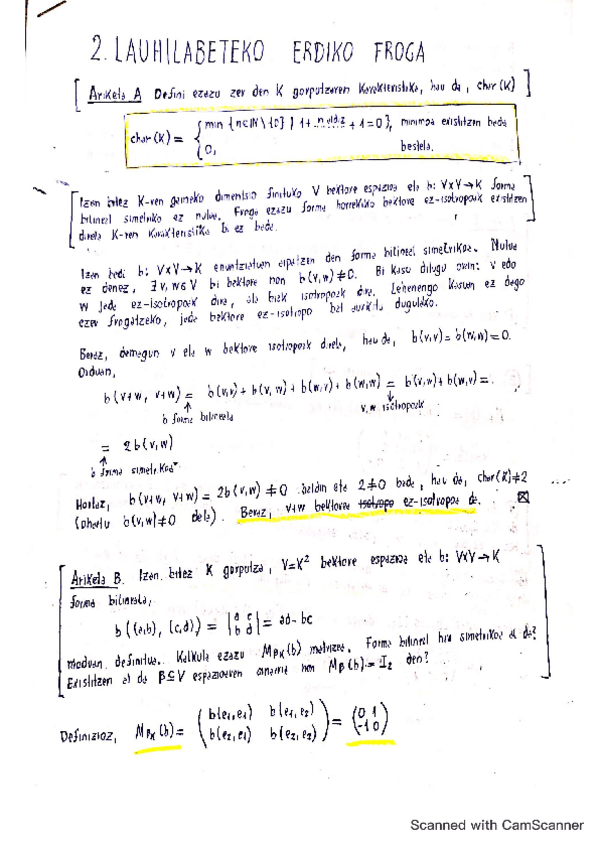 2. LAUHILABETEKO ERDIKO FROGA
Ariketa A Defini ezazu zer den K gorputzaren karakteristika, hau da, char(K)
char(K) = { min {n∈ℕ\{0} | 1+ n aldiz +1=0}, minimoa existitzen bada
0, bestela.
Izan bitez K-ren gaineko dimentsio finituko V bektore espazioa eta b: V×V→K forma
bilineal simetriko ez nulua. Froga ezazu forma horrekiko bektore ez-isotropoak existitzen
direla K-ren karakteristika ez bada.
Izan bedi b: V×V→K enuntziatuan aipatzen den forma bilineal simetrikoa. Nulua
ez denez, ∃ v,w∈V bi bektore non b(v,w)≠0. Bi kasu ditugu orain: v edo
w jada ez-isotropoak dira, ala biak isotropoak dira. Lehenengo kasuan ez dago
ezer frogatzeko, jada bektore ez-isotropo bat aurkitu dugulako.
Beraz, demagun v eta w bektore isotropoak direla, hau da, b(v,v)=b(w,w)=0.
Orduan,
b(v+w, v+w) = b(v,v)+b(v,w)+b(w,v)+b(w,w) = b(v,w)+b(w,v)=
b forma bilineala
v,w isotropoak
= 2b(v,w)
b forma simetrikoa
Hortaz, b(v+w, v+w) = 2b(v,w) ≠0 baldin eta 2≠0 bada, hau da, char(K)≠2
(ohartu b(v,w)≠0 dela). Beraz, v+w bektorea isotropo ez-isotropoa da.
Ariketa B. Izan bitez K gorputza, V=K² bektore espazioa eta b: V×V→K
forma bilineala,
b((a,b), (c,d)) = |a c| = ad-bc
|b d|
moduan definitua. Kalkula ezazu M_{βK}(b) matrizea. Forma bilineal hau simetrikoa al da?
Existitzen al da β⊆V espazioaren oinarria non M_β(b)=I₂ den?
Definizioz, M_{βK}(b) = (b(e₁,e₁) b(e₁,e₂)) = (0 1)
(b(e₂,e₁) b(e₂,e₂)) (-1 0)
Scanned with CamScanner